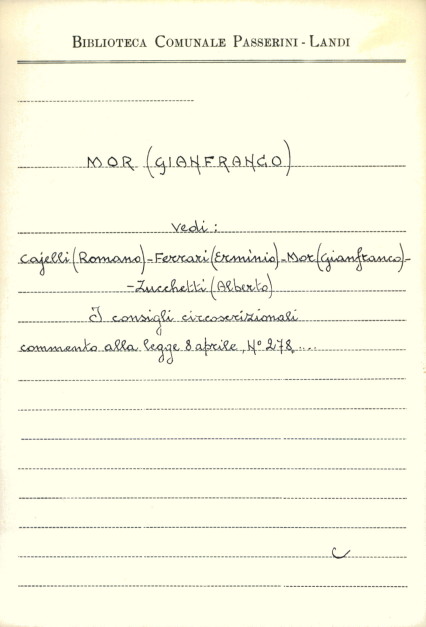 BIBLIOTECA COMUNALE PASSERINI - LANDI
MOR (GIANFRANCO)
vedi:
Cajelli (Romano) - Ferrari (Erminio) - Mor (Gianfranco) -
- Zucchetti (Alberto)
I consigli circoscrizionali
commento alla legge 8 aprile, N° 278, ....
C